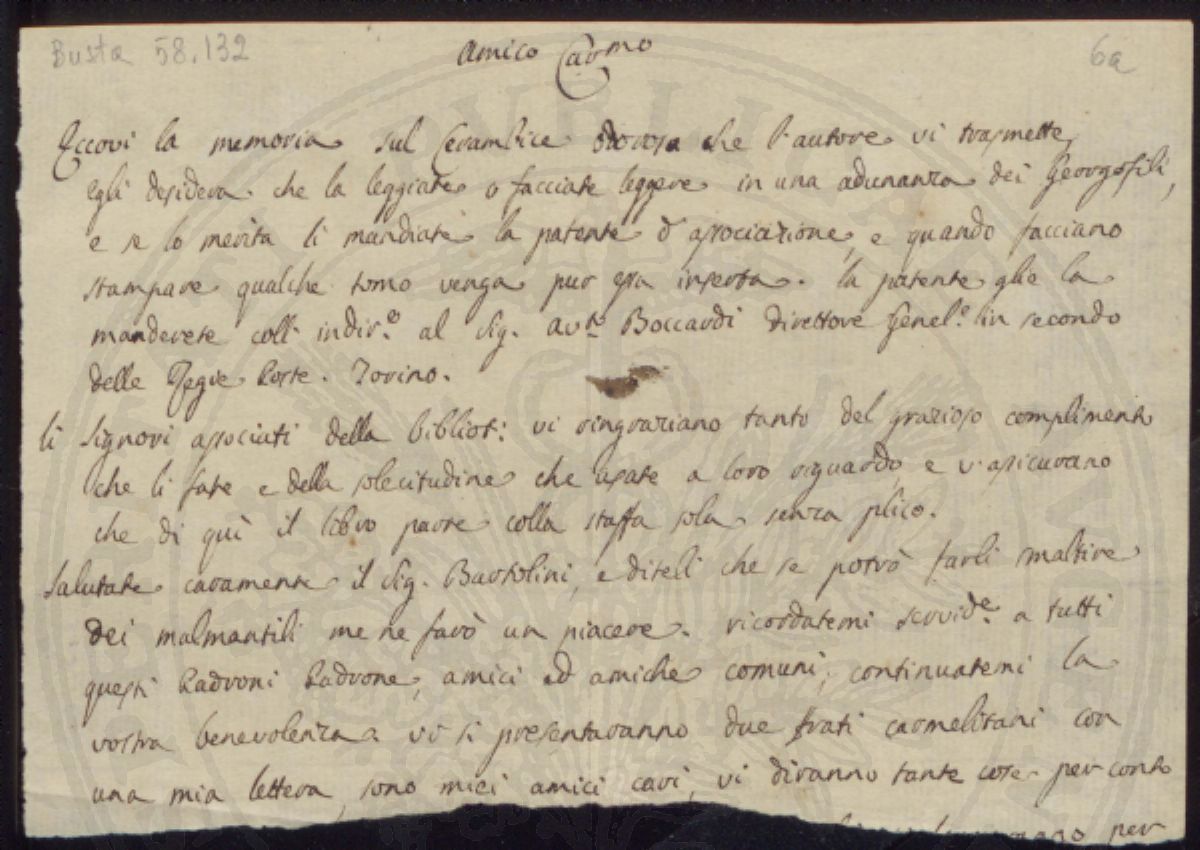 Busta 58.132
6a
Amico Car.mo
Eccovi la memoria sul Cerambice odoroso che l'autore vi trasmette,
egli desidera che la leggiate o facciate leggere in una adunanza dei Georgofili,
e se lo merita li mandiate la patente d'associazione, e quando facciano
stampare qualche tomo venga pur essa inserta. la patente glie la
manderete coll'indir.o al Sig. Boccardi direttore Genel.e in secondo
delle Regie Poste. Torino.
li Signori associati della bibliot: vi ringraziano tanto del grazioso complimento
che li fate e della solecitudine che usate a loro riguardo, e v'assicurano
che di quì il libro parte colla staffa sola senza plico.
Salutate caramente il Sig. Bartolini, e diteli che se potrò farli
dei malmantili me ne farò un piacere. ricordatemi servid.e a tutti
questi Padroni Padrone, amici ed amiche comuni, continuatemi la
vostra benevolenza vi si presentaranno due frati carmelitani con
una mia lettera, sono miei amici cari, vi diranno tante cose per conto
per